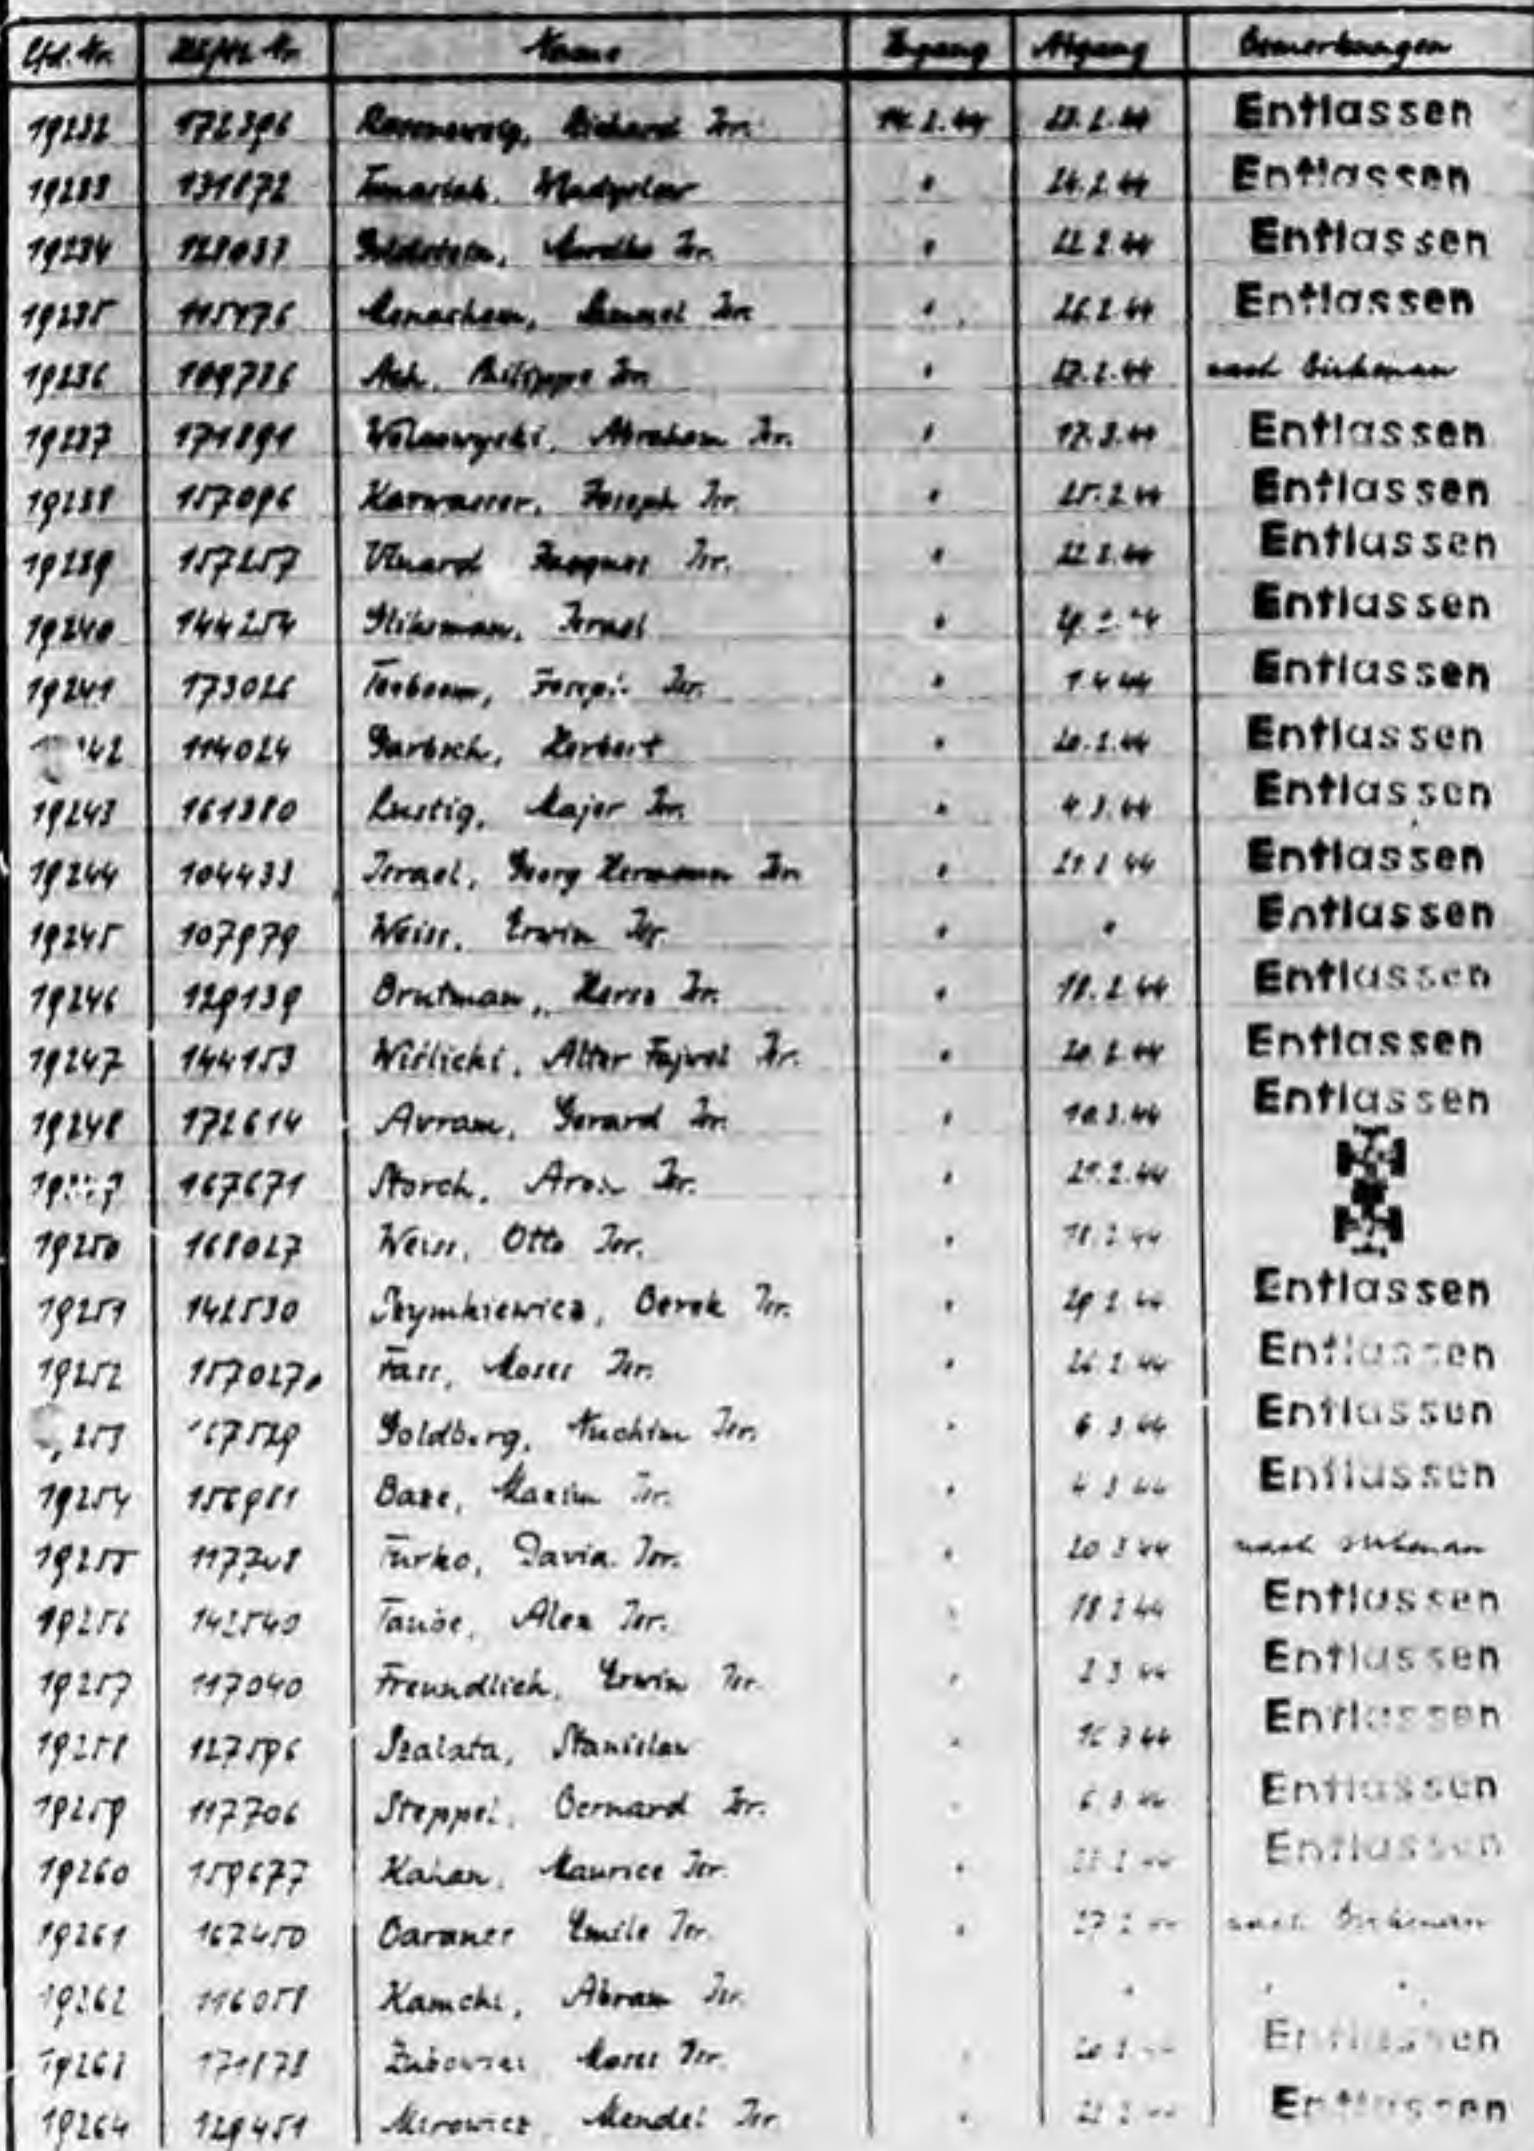 Lfd. Nr. Häftl. Nr. Name Zugang Abgang Bemerkungen
19232 172396 Rosenzweig, Richard Isr. 14.2.44 Entlassen
19233 131872 24.2.44 Entlassen
19234 128037 Goldstein, Isr. " 22.2.44 Entlassen
19235 115176 Menachem, Samuel Isr. " 26.2.44 Entlassen
19236 109736 Philippe Isr. " 27.2.44 nach Birkenau
19237 171891 Abraham Isr. " 17.3.44 Entlassen
19238 157096 Karwasser, Joseph Isr. " 25.2.44 Entlassen
19239 157257 Jacques Isr. " 22.2.44 Entlassen
19240 144254 Gliksman, Israel " Entlassen
19241 173026 Isr. " 1.4.44 Entlassen
42 114024 Garbsch, Herbert " 20.2.44 Entlassen
19243 161380 Lustig, Majer Isr. " 4.3.44 Entlassen
19244 104433 Israel, Georg Hermann Isr. " Entlassen
19245 107979 Weiss, Erwin Isr. " " Entlassen
19246 129139 Brutman, Hersz Isr. " 18.2.44 Entlassen
19247 144153 Wiślicki, Alter Fajwel Isr. " 20.2.44 Entlassen
19248 172614 Avram, Gerard Isr. " 10.3.44 Entlassen
167671 Storch, Isr. " 21.2.44
19250 168027 Weiss, Otto Isr. " 18.2.44
19251 142530 Szymkiewicz, Berek Isr. " 29.2.44 Entlassen
19252 157027 Fass, Moses Isr. " 26.2.44 Entlassen
253 67529 Goldberg, Nuchim Isr. " 6.3.44 Entlassen
19254 156981 Baze, Maxim Isr. " 4.3.44 Entlassen
19255 Isr. " 20.3.44 nach Birkenau
19256 142540 Taube, Alex Isr. " 18.2.44 Entlassen
19257 117040 Freundlich, Erwin Isr. " 2.3.44 Entlassen
19258 127596 Szalata, Stanislaw " 16.3.44 Entlassen
19259 117706 Steppel, Bernard Isr. " 6.3.44 Entlassen
19260 159677 Kahan, Maurice Isr. " Entlassen
19261 162450 Emile Isr. " 27.2.44 nach Birkenau
19262 116058 Kamchi, Abram Isr. " " "
19263 171878 Moses Isr. " Entlassen
19264 129451 Mirowicz, Mendel Isr. " Entlassen